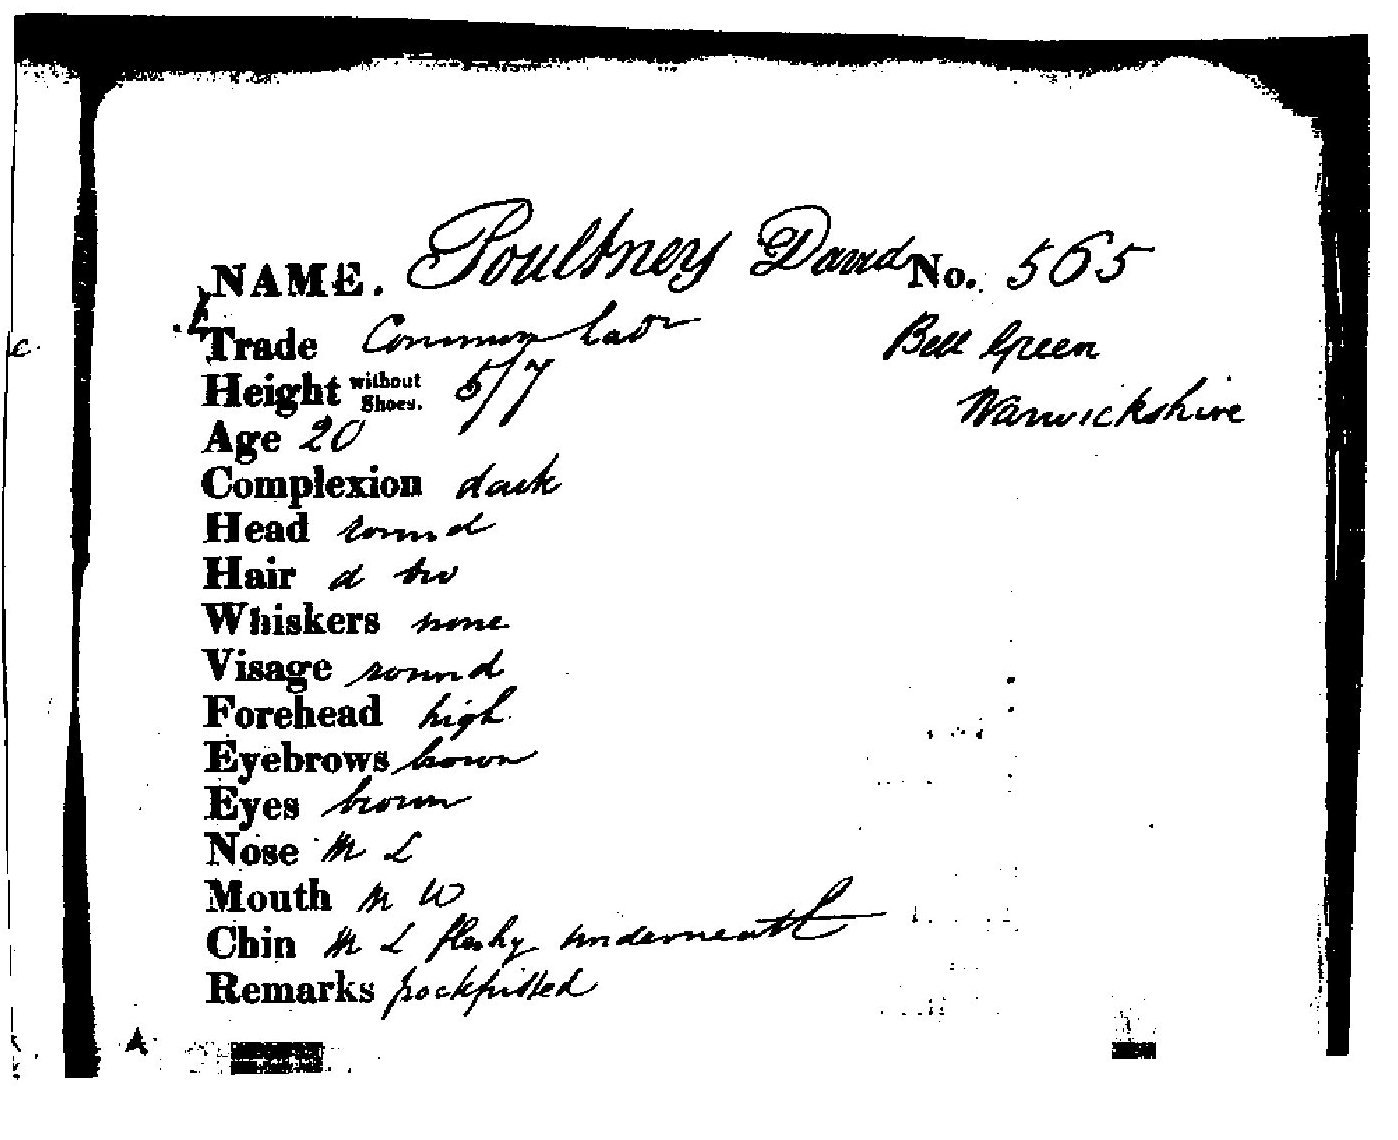 NAME. Poultney David No. 565
Trade Common labr Bell Green
Height without Shoes. 5/7 Warwickshire
Age 20
Complexion dark
Head round
Hair d bro
Whiskers none
Visage round
Forehead high
Eyebrows brown
Eyes brown
Nose M L
Mouth M W
Chin M L fleshy underneath
Remarks pockpitted